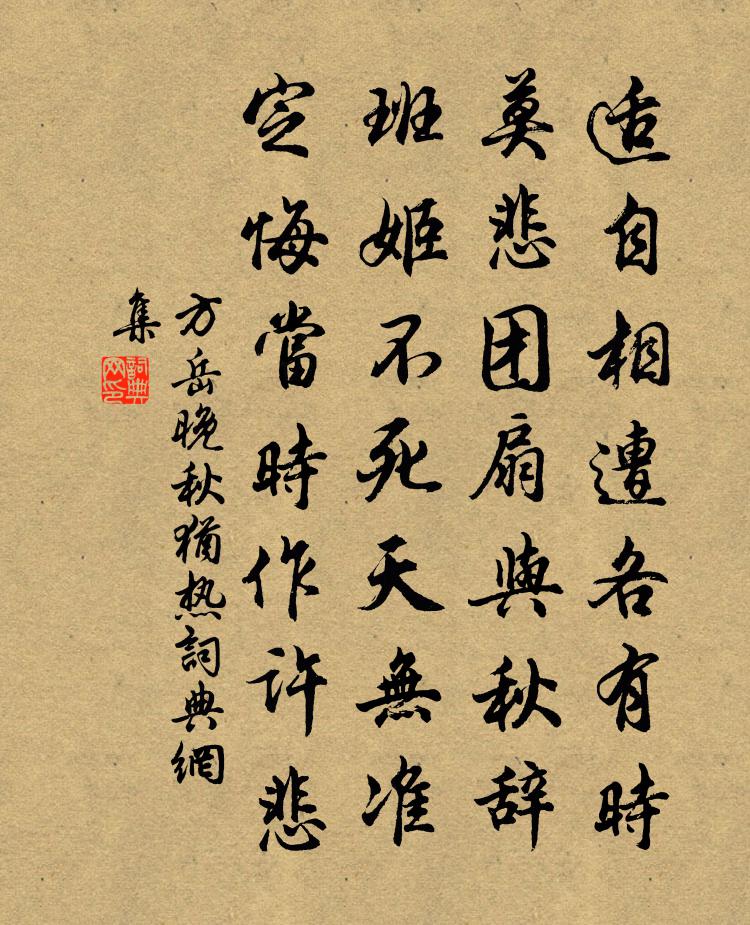 适自相遭各有時
莫悲团扇與秋辞
班姬不死天無准
定悔當時作許悲
方岳晚秋猶热詞典網
集
詞典網印